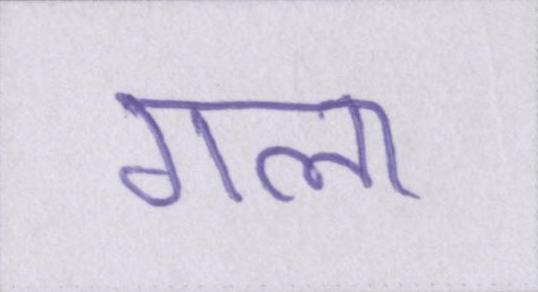 गला